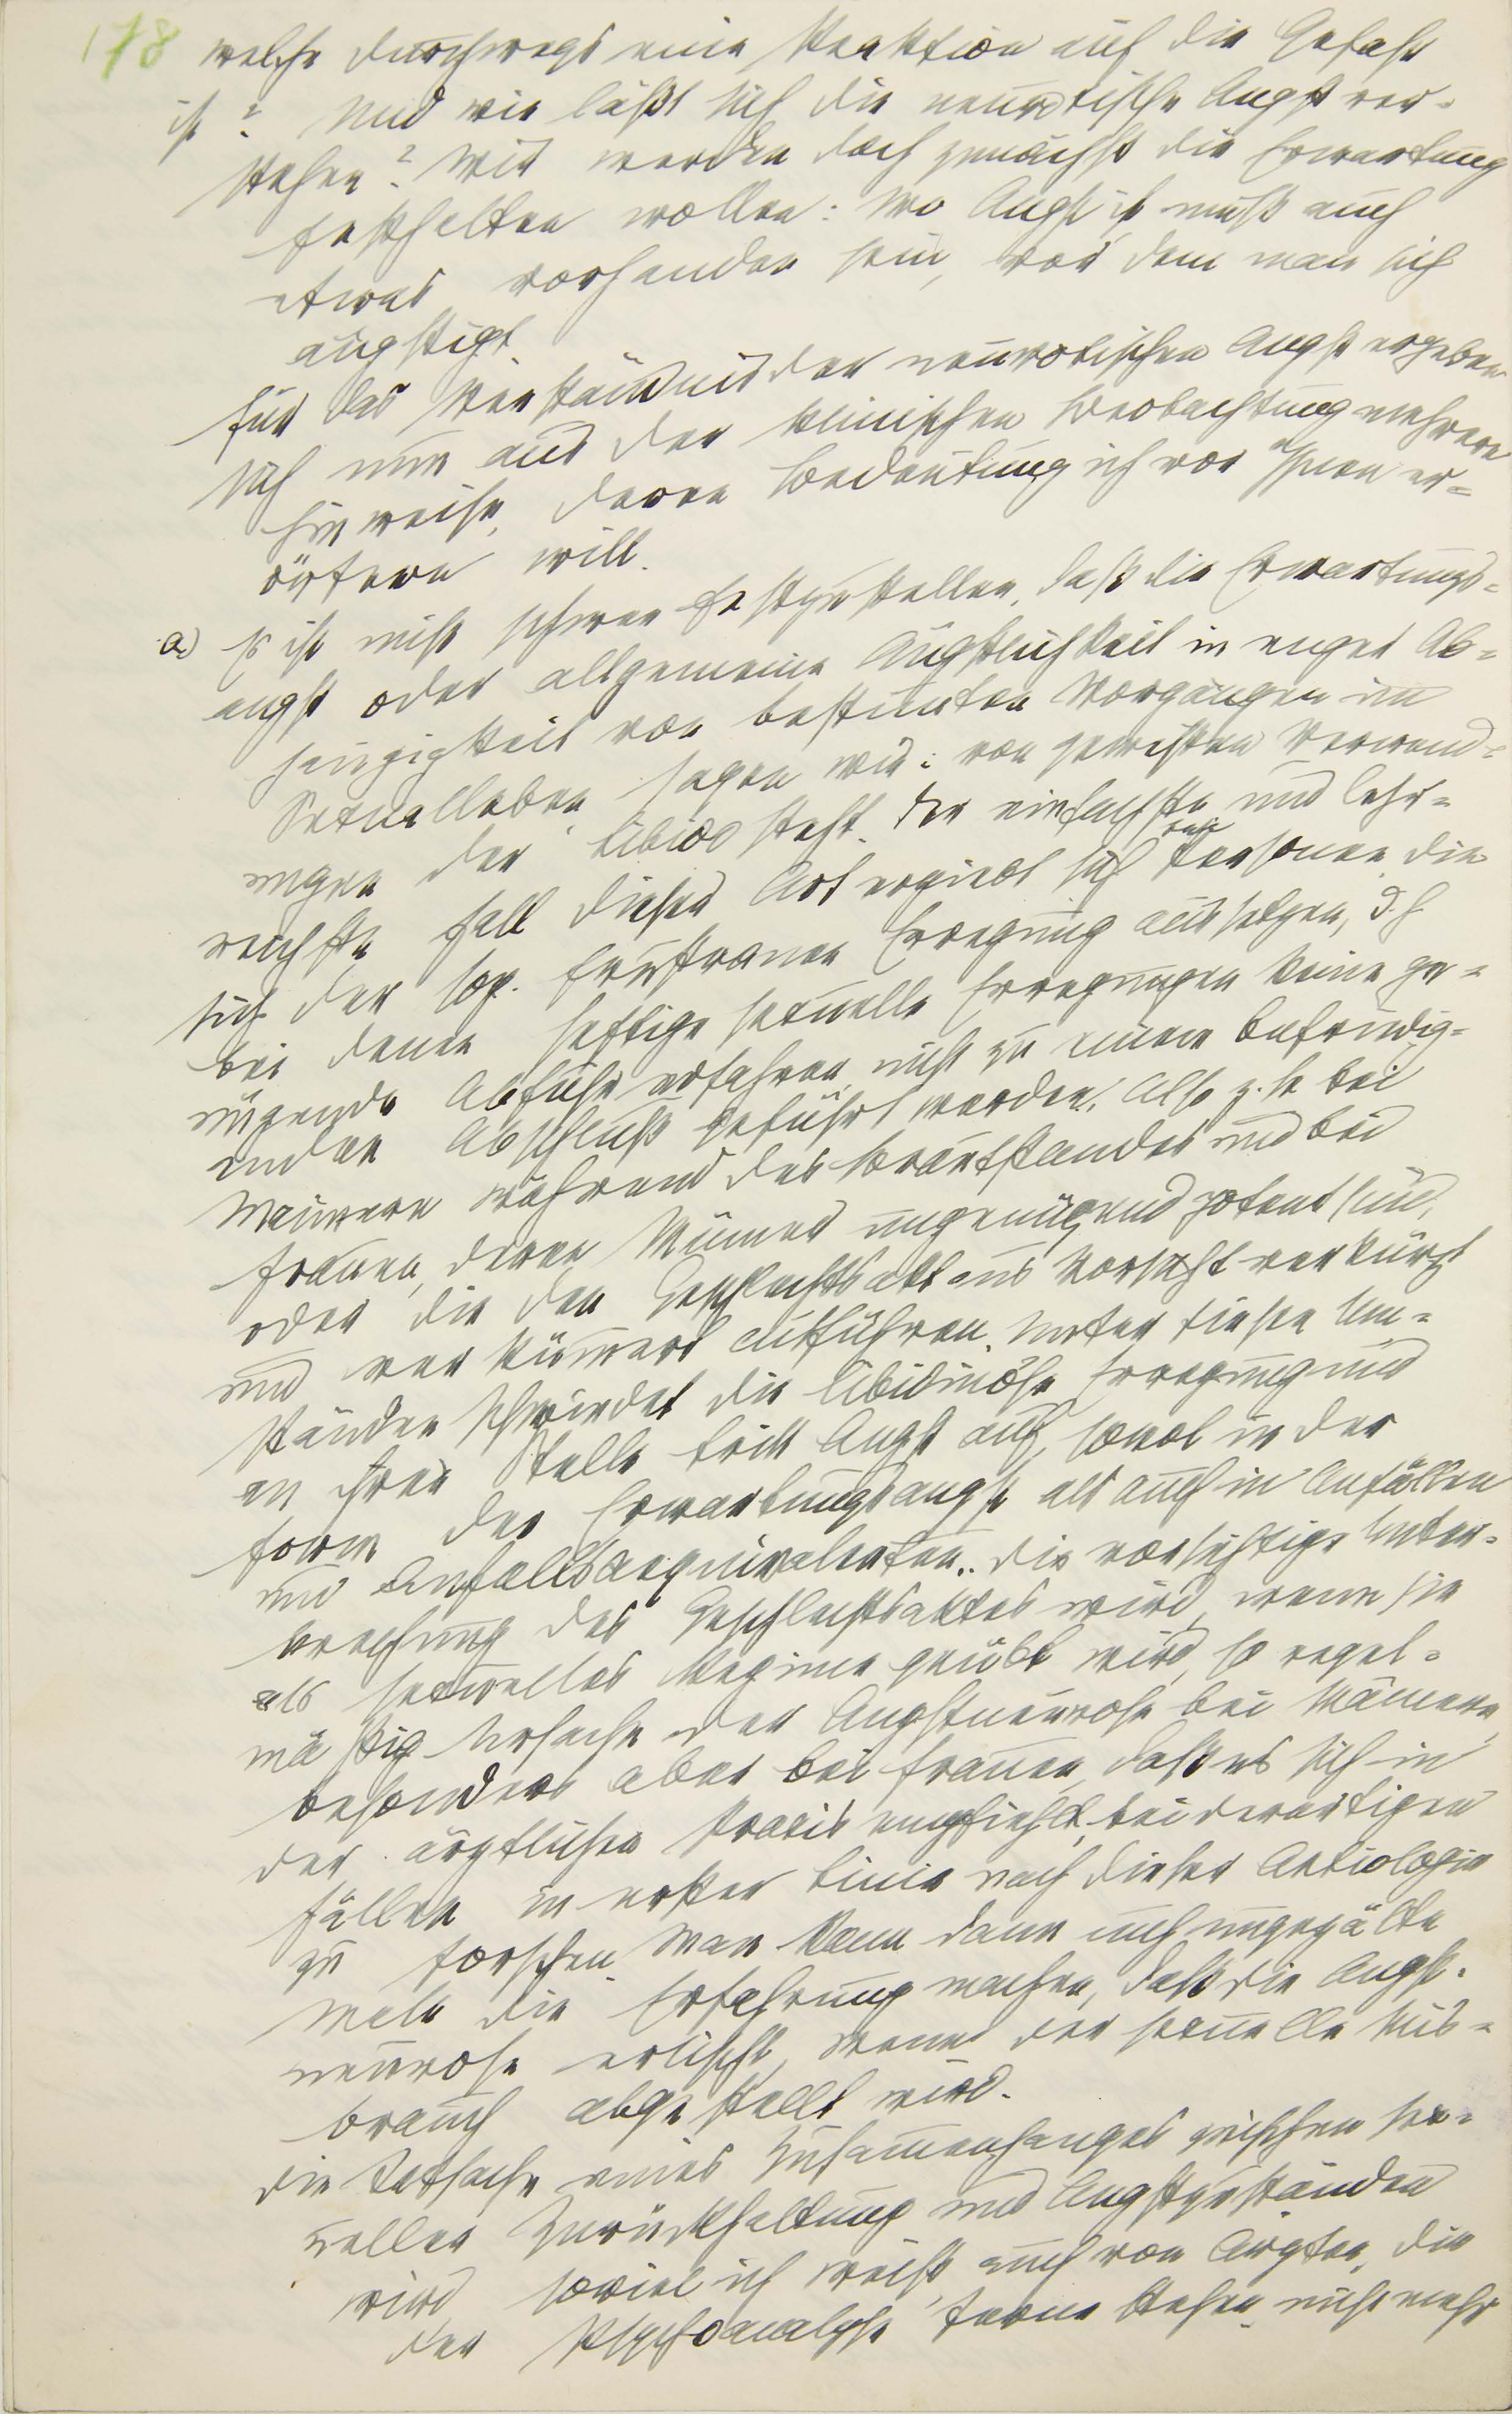 178 welche durchwegs eine Reaktion auf die Gefahr
ist? Und wie läßt sich die neurotische Angst ver-
stehen? Wir werden doch zunächst die Erwartung
festhalten wollen: Wo Angst ist, muß auch
etwas vorhanden sein, vor dem man sich
ängstigt.
Für das Verständnis der neurotischen Angst ergeben
sich nun aus der klinischen Beobachtung mehrere
Hinweise, deren Bedeutung ich vor Ihnen er-
örtern will.
a) Es ist nicht schwer festzustellen, daß die Erwartungs-
angst oder allgemeine Ängstlichkeit in enger Ab-
hängigkeit von bestimten Vorgängen im
Sexualleben, sagen wir: von gewissen Verwend-
ungen der Libido steht. Der einfachste und lehr-
reichste Fall dieser Art ergiebt sich bei Personen, die
sich der sog. frustranen Erregung aussetzen, d.h
bei denen heftige sexuelle Erregungen keine ge-
nügende Abfuhr erfahren, nicht zu einem befriedig-
enden Abschluß geführt werden. Also z.b bei
Männern während des Brautstandes und bei
Frauen, deren Männer ungenügend potent sind,
oder die den Geschlechtsakt aus Vorsicht verkürzt
und verkümmert ausführen. Unter diesen Um-
ständen schwindet die libidinöse Erregung und
an ihrer Stelle tritt Angst auf, sowol in der
Form der Erwartungsangst als auch in Anfällen
und Anfallsaequivalenten. Die vorsichtige Unter-
brechung des Geschlechtsaktes wird, wenn sie
als sexuelles Regime geübt wird, so regel-
mäßig Ursache der Angstneurose bei Männern,
besonders aber bei Frauen, daß es sich in
der ärztlichen Praxis empfiehlt, bei derartigen
Fällen in erster Linie nach dieser Aetiologie
zu forschen. Man kann dann auch ungezälte
Male die Erfahrung machen, daß die Angst-
neurose erlischt, wenn der sexuelle Mis-
brauch abgestellt wird.
Die Tatsache eines Zusammenhanges zwischen sex-
ueller Zurückhaltung und Angstzuständen
wird, soviel ich weiß, auch von Ärzten, die
der Psychoanalyse ferne stehen, nicht mehr